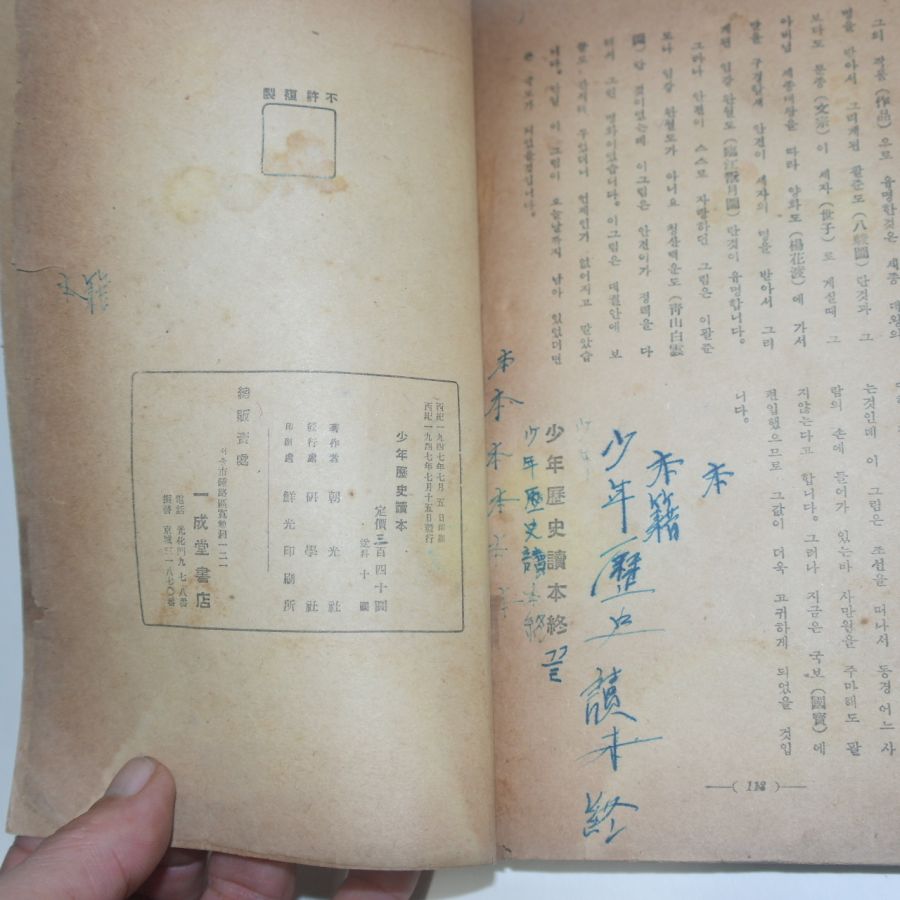 그의 작품 (作品) 으로 유명한것은 세종 대왕의
명을 받아서 그리게된 팔준도 (八駿圖) 란것과 그
보다도 문종 (文宗) 이 세자 (世子) 로 게실때 그
아버님 세종대왕을 따라 양화도 (楊花渡) 에 가서
달을 구경할새 안견이 세자의 명을 받아서 그리
게된 임강완월도 (臨江翫月圖) 란것이 유명합니다.
그러나 안견이 스스로 자랑하던 그림은 이팔준
도나 임강 완월도가 아니요 청산백운도 (青山白雲
圖) 란 것이었는데 이그림은 안견이가 정력을 다
하여 그린 명화이었습니다. 이그림은 대궐안에 보
니다. 만일 이 그림이 오늘날까지 남아 있었더면
는것인데 이 그림은 조선을 떠나서 동경 어느 사
람의 손에 들어가 있는바 사만원을 주마해도 팔
지않는다고 합니다. 그러나 지금은 국보 (國寶) 에
편입했으므로 그값이 더욱 고귀하게 되었을 것입
니다.
本
本籍
少年歷史讀本終
少年歷史讀本終 끝
少年
少年歷史讀本終
本本本本本本
—( 113 )—
不許複製
西紀一九四七年七月 五 日印刷
西紀一九四七年七月十五日發行
少年歷史讀本
定價三百四十圓
送料 十 圓
著作者 朝光社
發行處 研學社
印刷處 鮮光印刷所
總販賣處
서울市鍾路區寬勳洞一二一
一成堂書店
電話 光化門九七八番
振替 京城三一八七〇番